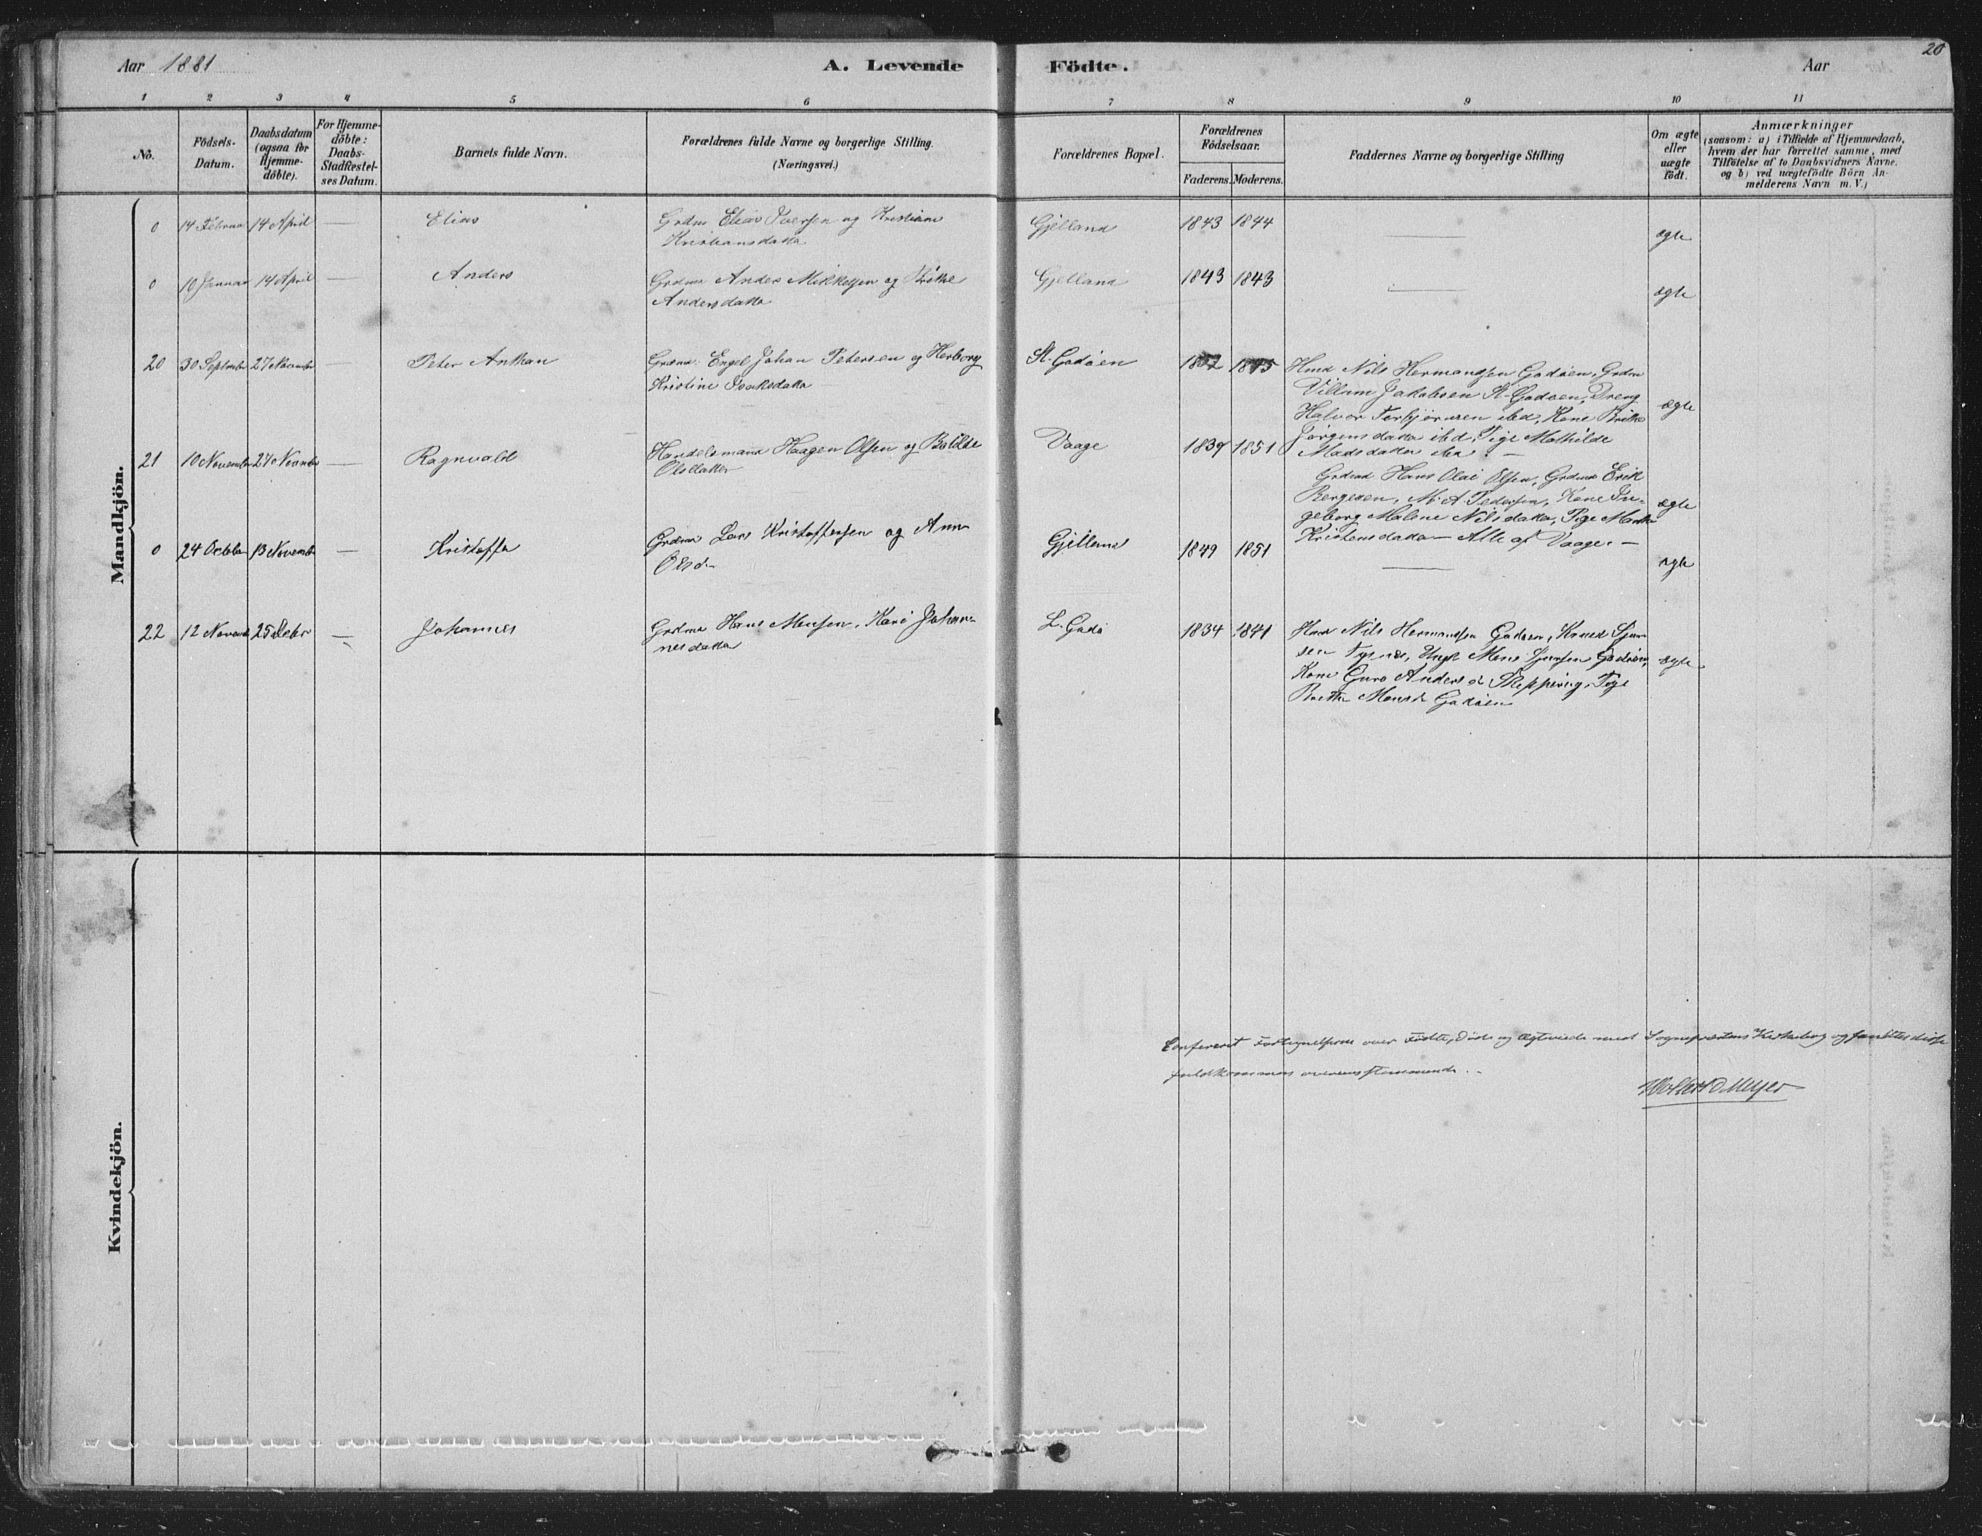 20
Aar 1881
A. Levende
Födte.
Aar
1 2 3 4 5 6 7 8 9 10 11
No.
Födsels-
Datum.
Daabsdatum
(ogsaa for
Hjemme-
döbte).
For Hjemme-
döbte:
Daabs-
Stadfæstel-
ses Datum.
Barnets fulde Navn.
Forældrenes fulde Navne og borgerlige Stilling.
(Næringsvei.)
Forældrenes Bopæl.
Forældrenes
Födselsaar.
Faderens. Moderens.
Faddernes Navne og borgerlige Stilling
Om ægte
eller
uægte
födt.
Anmærkninger
(saasom: a) i Tilfælde af Hjemmedaab,
hvem der har forrettet samme, med
Tilföielse af to Daabsvidners Navne.
og b) ved uægtefödte Börn An-
melderens Navn m. V.)
Mandkjön.
0 14 Februar 14 April — Elias
Grdm Elias Iversen og Kristiane
Kristiansdatter
Gjelland 1843 1844 — ægte
0 10 Januar 14 April — Anders
Grdm Anders Mikkelsen og
Andersdatter
Gjelland 1843 1843 — ægte
20 30 September 27 November — Peter Anthan
Grdmd. Engel Johan Petersen og Herborg
Kristine
St. Gadöen 1875
Hmd Nils Hermansen Gadöen, Grdm
Villum Jakobsen St. Gadöen, Dreng
Halvor Torbjörnsen ibd, Kone Brithe
Jørgensdatter ibd, Pige Mathilde
Madsdatter
ægte
21 10 November 27 November — Ragnvald
Handelsmand Haagen Olsen og Bolette
Olsdatter
Vaage 1839 1851
Grdmd Hans Olai Olsen, Grdmd Erik
Bergesen, M. A. Pedersen, Kone In-
geborg Malene Nilsdatter, Pige Marthe
Kristensdatter — Alle af Vaage. —
ægte
0 24 October 13 November — Kristoffer
Grdmd Lars Kristoffersen og Anna
Olsd
Gjelland 1849 1851 — ægte
22 12 November 25 Decbr — Johannes
Grdmd Hans Monsen, Kari Johan-
nesdatter
L. Gadö 1834 1841
Hmd Nils Hermansen Gadöen, Knud Sjur-
sen Tysnes, Ungk Mons Gadöen,
Kone Guro Andersd Skeppevig, Pige
Brithe Monsd Gadöen
ægte
Kvindekjön.
Confereret Fortegnelserne over Födte, Döde og Ægteviede med Sognepræstens Kirkebog og fandtes disse
fuldkommen overensstemmende. —
Meyer